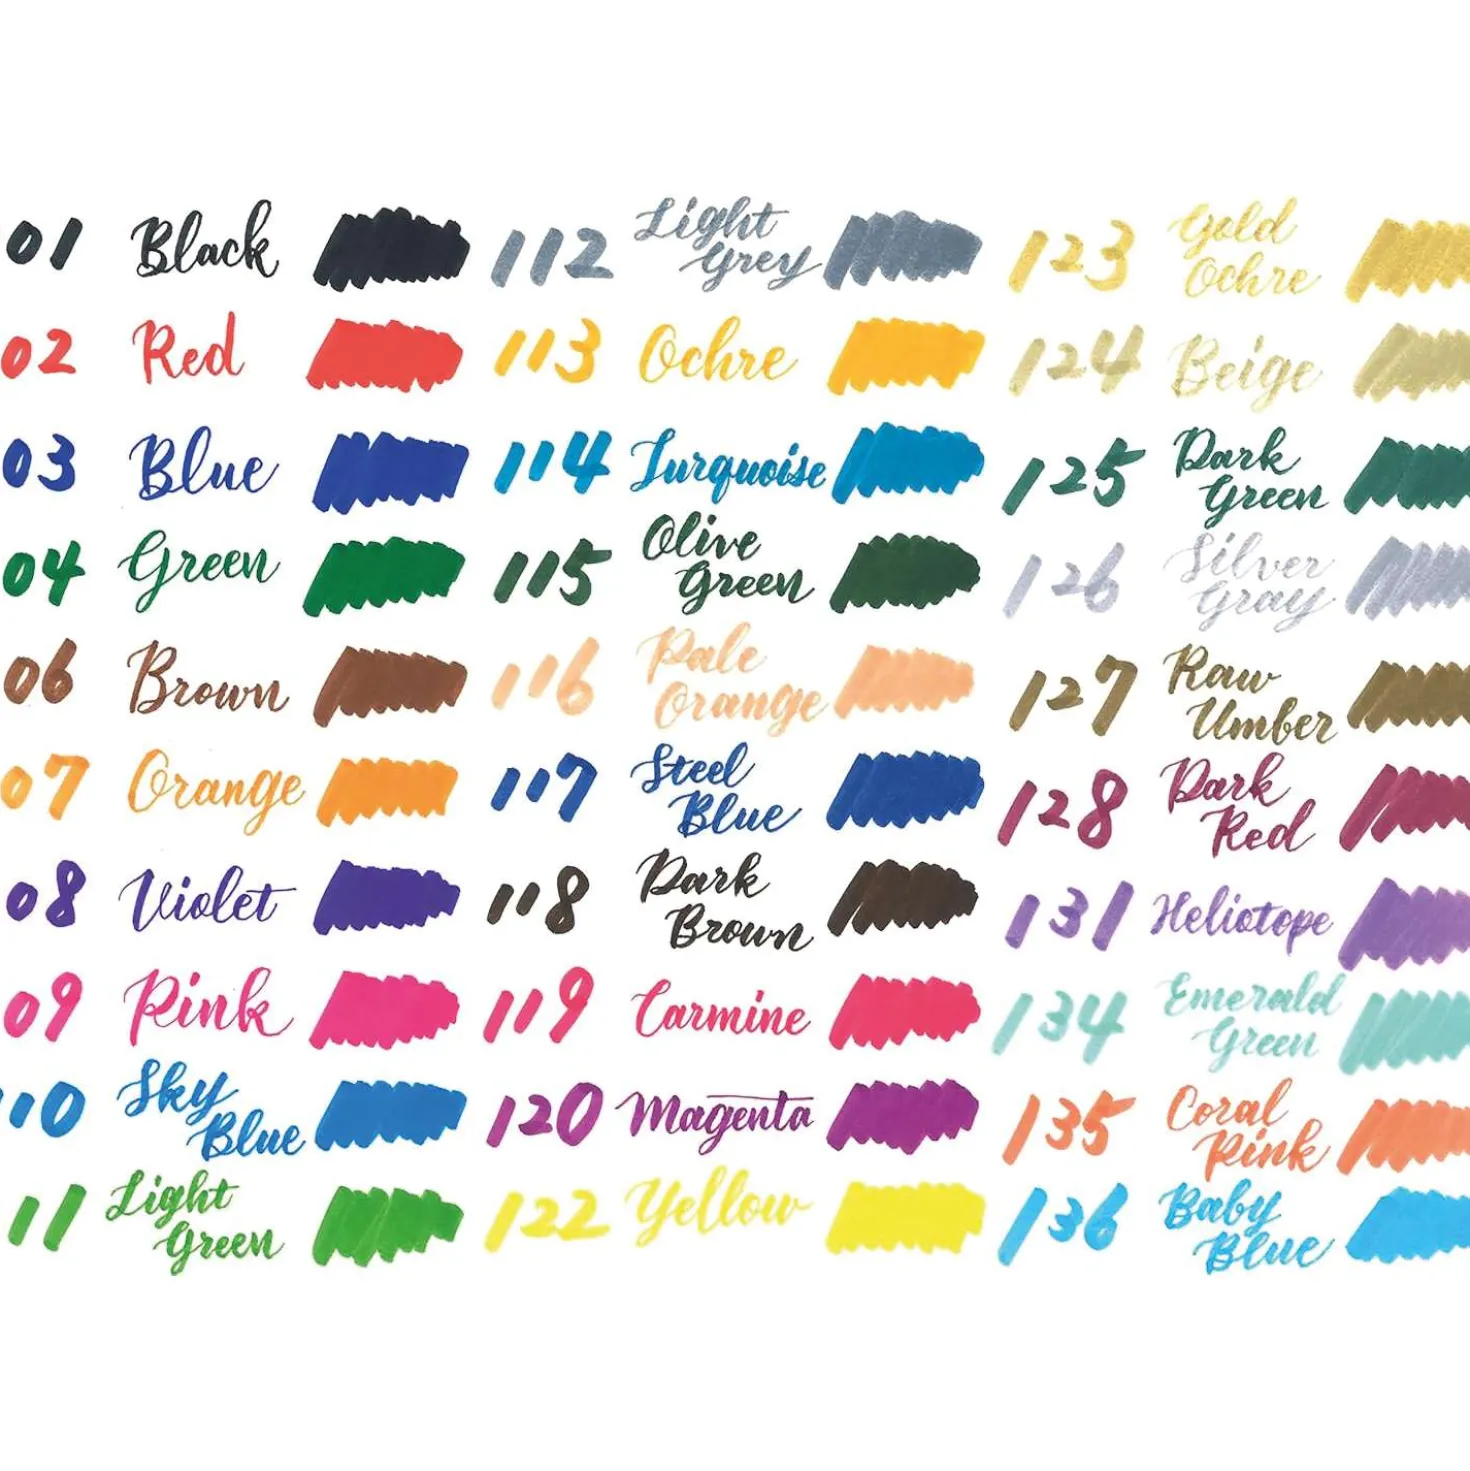 01 Black
02 Red
03 Blue
04 Green
06 Brown
07 Orange
08 Violet
09 Pink
110 Sky
Blue
11 Light
Green
112 Light
Grey
113 Ochre
114 Turquoise
115 Olive
Green
116 Pale
Orange
117 Steel
Blue
118 Dark
Brown
119 Carmine
120 Magenta
122 Yellow
123 Gold
Ochre
124 Beige
125 Dark
Green
126 Silver
Gray
127 Raw
Umber
128 Dark
Red
131 Heliotope
134 Emerald
Green
135 Coral
Pink
136 Baby
Blue